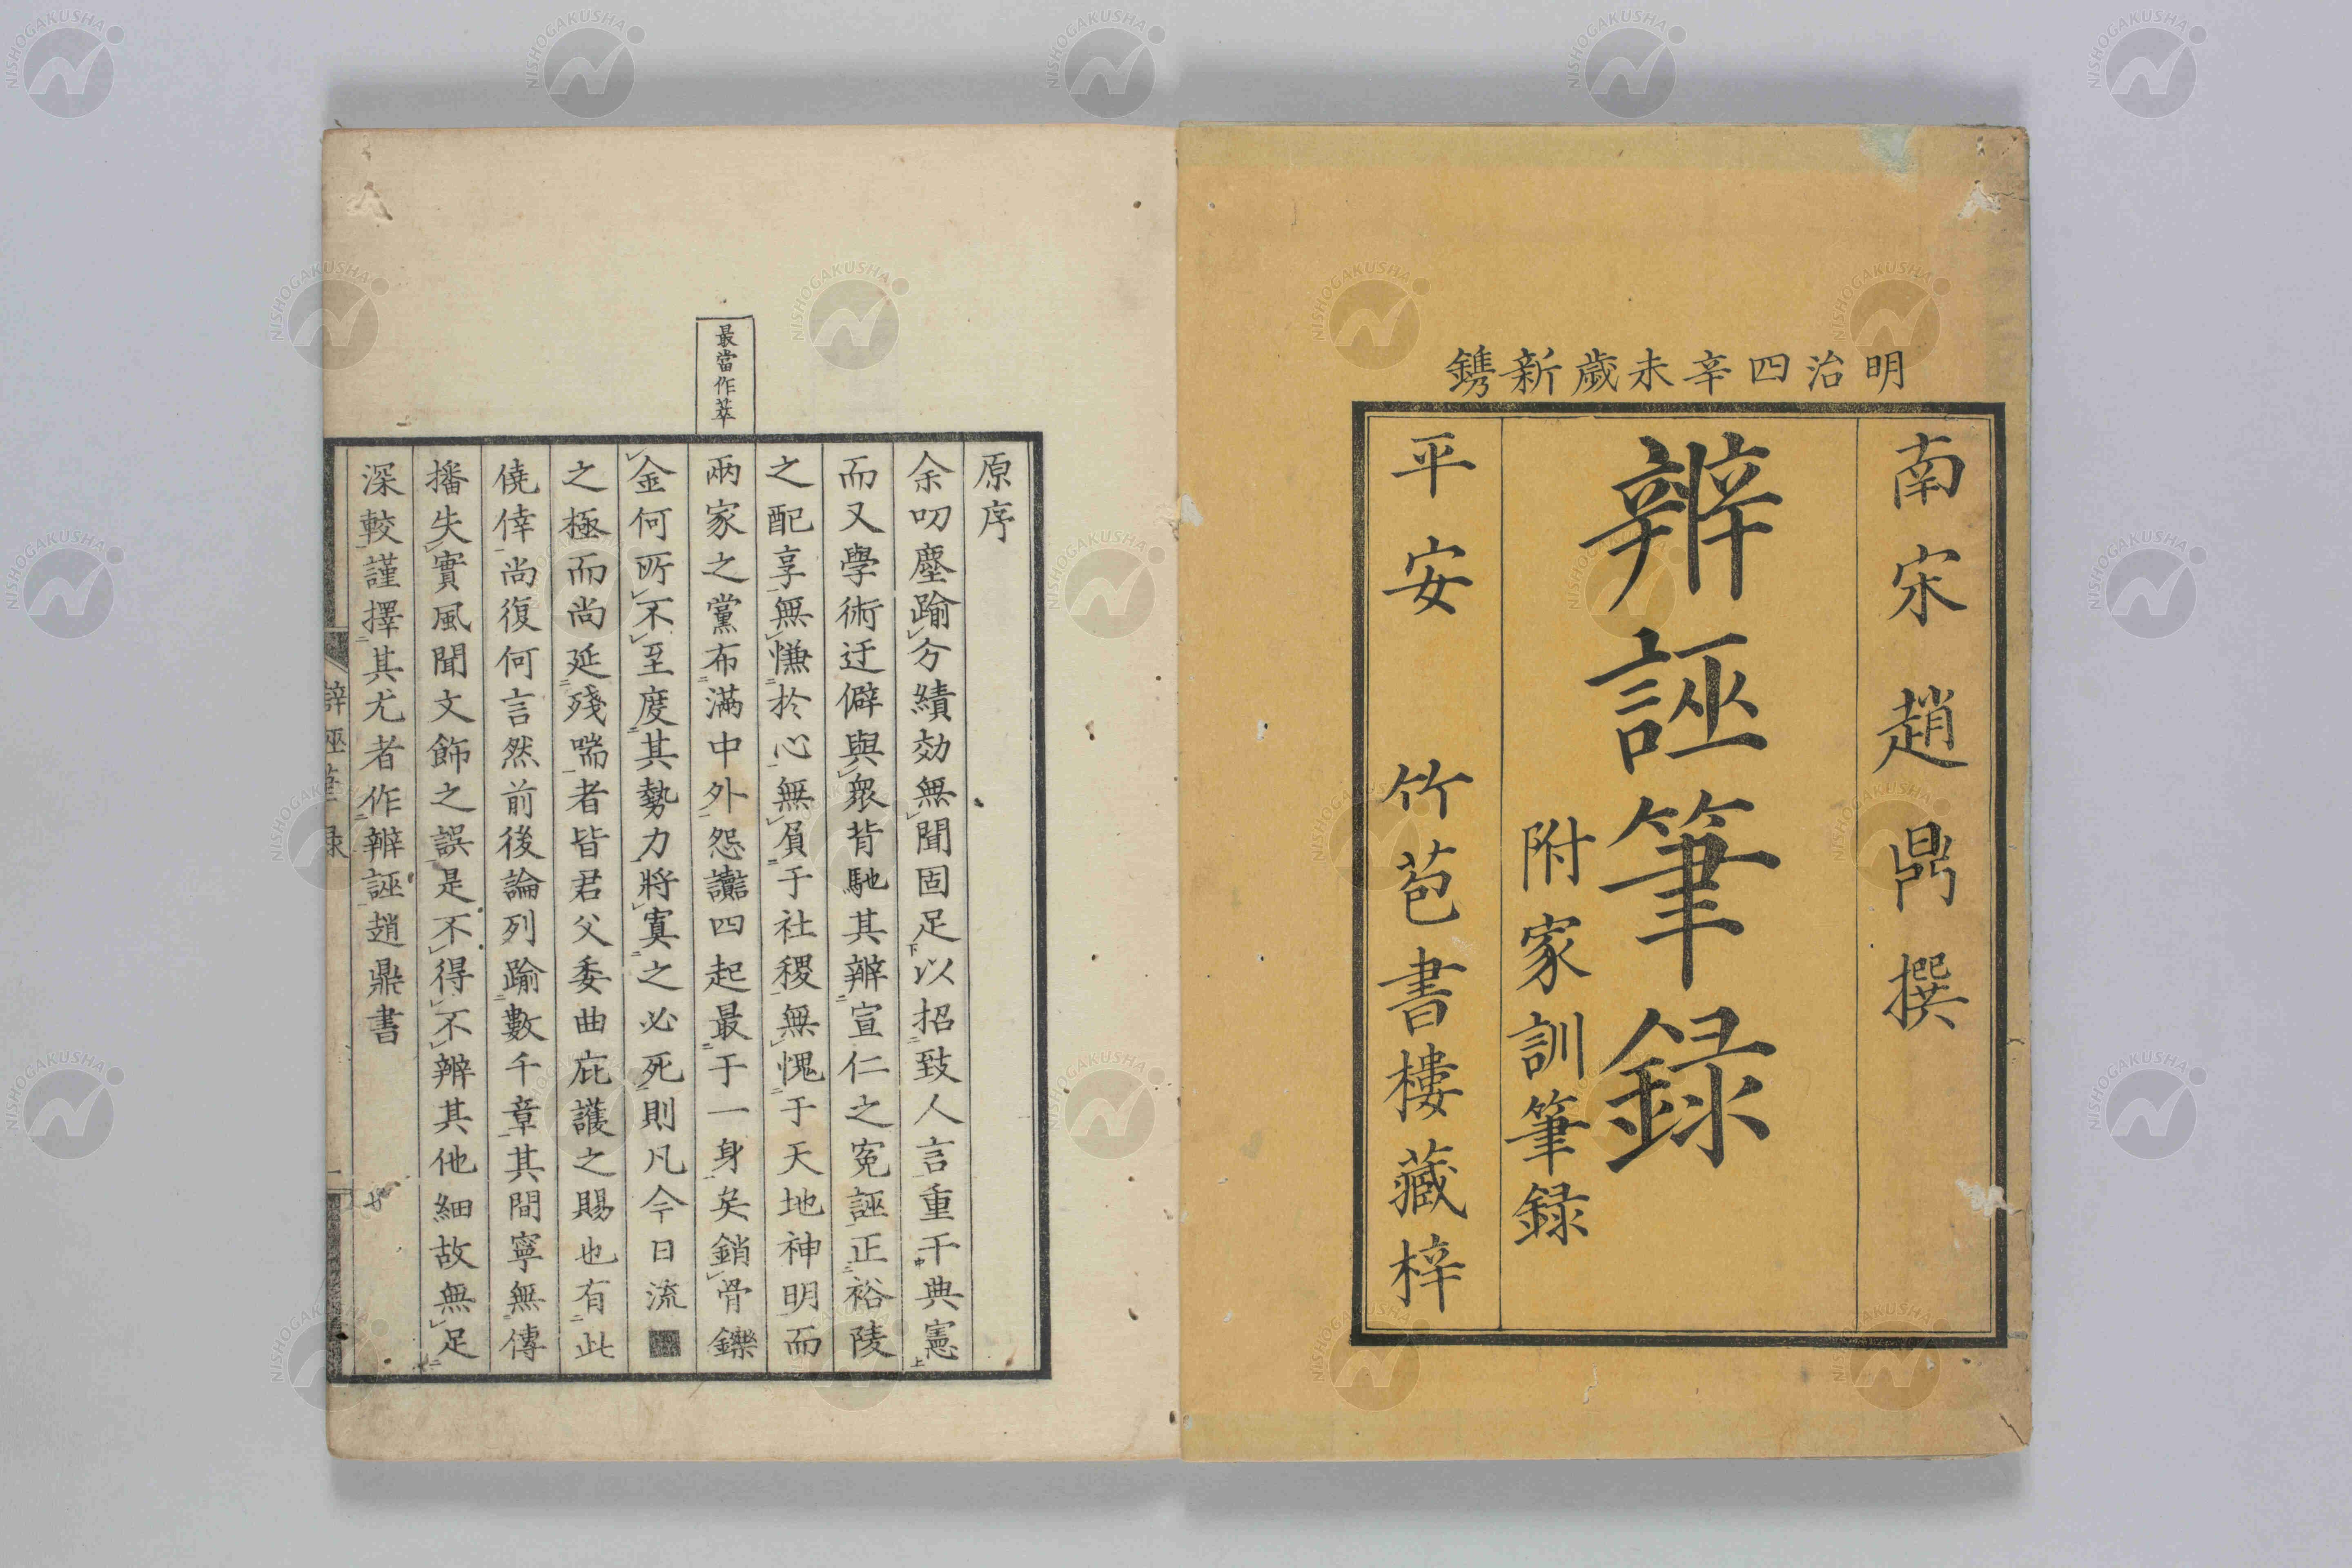 明治四辛未歲新鐫
南宋趙鼎撰
辨誣筆録
附家訓筆録
平安 竹苞書樓藏梓
最當作萃
原序
余叨塵踰分績効無聞固足以招致人言重干典憲
而又學術迂僻與衆背馳其辨宣仁之冤誣正裕陵
之配享無慊於心無負于社稷無愧于天地神明而
兩家之黨布滿中外怨讟四起最于一身矣銷骨鑠
金何所不至度其勢力將寘之必死則凡今日流
之極而尚延殘喘者皆君父委曲庇護之賜也有此
僥倖尚復何言然前後論列踰數千章其間寧無傳
播失實風聞文飾之誤是不得不辨其他細故無足
深較謹擇其尤者作辨誣趙鼎書
辯誣筆録
NISHOGAKUSHA